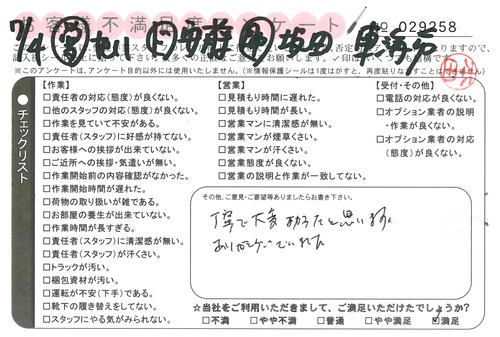 お客様不満足度アンケート
No 029258
7/4
チェックリスト
※このアンケートは、アンケート目的以外には使用いたしません。(※情報保護シールは1度はがすと、再度貼りなおすことはできません)
【作業】
□責任者の対応(態度)が良くない。
□他のスタッフの対応(態度)が良くない。
□作業を見ていて不安がある。
□責任者(スタッフ)に好感が持てない。
□お客様への挨拶が出来ていない。
□ご近所への挨拶・気遣いが無い。
□作業開始前の内容確認がなかった。
□作業開始時間が遅れた。
□荷物の取り扱いが雑である。
□お部屋の養生が出来ていない。
□作業時間が長すぎる。
□責任者(スタッフ)に清潔感が無い。
□責任者(スタッフ)が汗くさい。
□トラックが汚い。
□梱包資材が汚い。
□運転が不安(下手)である。
□靴下の履き替えをしてない。
□スタッフにやる気がみられない。
【営業】
□見積もり時間に遅れた。
□見積もり時間が長い。
□営業マンに清潔感が無い。
□営業マンが煙草くさい。
□営業マンが汗くさい。
□営業態度が良くない。
□営業の説明と作業が一致してない。
【受付・その他】
□電話の対応が良くない。
□オプション業者の説明
・作業が良くない。
□オプション業者の対応
(態度)が良くない。
その他、ご意見・ご要望等ありましたらお書き下さい。
丁寧で大変助かったと思います。
ありがとうございました
☆当社をご利用いただきまして、ご満足いただけたでしょうか?
□不満 □やや不満 □普通 □やや満足 ☑満足